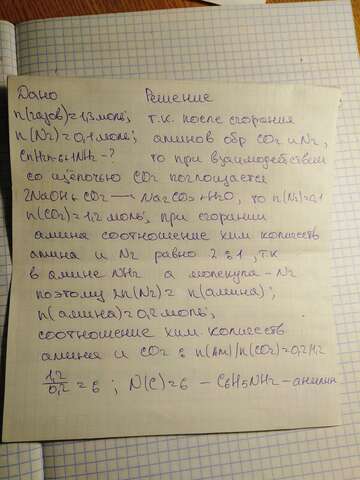 Дано Решение
n(газов)=1,3моль; т.к. после сгорания
n(N2)=0,1моль; аминов обр CO2 и N2,
CnH2n-6+1NH2-? то при взаимодействии
со щёлочью CO2 поглощается
2NaOH+CO2 → Na2CO3+H2O, то n(N2)=0,1
n(CO2)=1,2моль; при сгорании
амина соотношение хим количеств
амина и N2 равно 2:1, т.к
в амине NH2 а молекула - N2
поэтому 2n(N2)=n(амина);
n(амина)=0,2моль;
соотношение хим количеств
амина и CO2: n(Ам)/n(CO2)=0,2/1,2
1,2/0,2=6; N(C)=6 - C6H5NH2-анилин